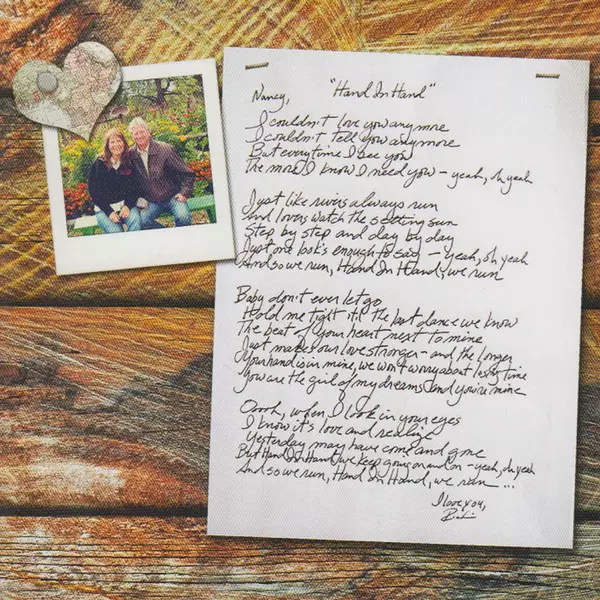 Nancy, "Hand In Hand"
I couldn't love you anymore
I couldn't tell you anymore
But everytime I see you
The more I know I need you - yeah, oh yeah
Just like rivers always run
And lovers watch the setting sun
Step by step and day by day
Just one look's enough to say - yeah, oh yeah
And so we run, Hand In Hand, we run
Baby don't ever let go
Hold me tight til the last dance we know
The beat of your heart next to mine
Just makes our love stronger - and the longer
Your hand is in mine, we won't worry about losing time
You are the girl of my dreams and you're mine
Ooooh, when I look in your eyes
I know it's love and realize
Yesterday may have come and gone
But Hand In Hand, we keep going on and on - yeah, oh yeah
And so we run, Hand In Hand, we run ...
I love you,